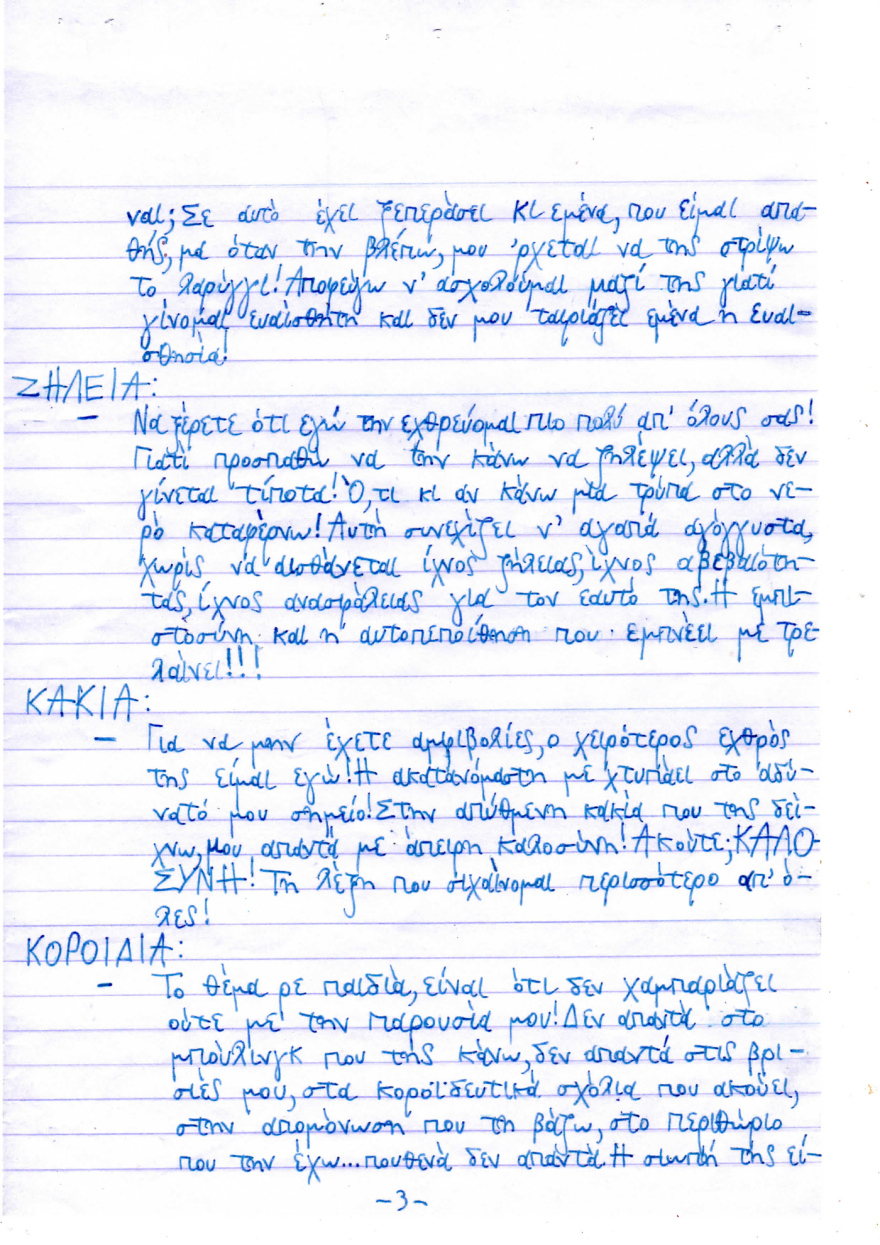 ναι; Σε αυτό έχει ξεπεράσει κι εμένα, που είμαι απα-
θής, μα όταν την βλέπω, μου 'ρχεται να της στρίψω
το λαρύγγι! Αποφεύγω ν' ασχολούμαι μαζί της γιατί
γίνομαι ευαίσθητη και δεν μου ταιριάζει εμένα η ευαι-
σθησία!
ΖΗΛΕΙΑ:
- Να ξέρετε ότι εγώ την εχθρεύομαι πιο πολύ απ' όλους σας!
Γιατί προσπαθώ να την κάνω να ζηλέψει, αλλά δεν
γίνεται τίποτα! Ό,τι κι αν κάνω μια τρύπα στο νε-
ρό καταφέρνω! Αυτή συνεχίζει ν' αγαπά αγόγγυστα,
χωρίς να αισθάνεται ίχνος ζήλειας, ίχνος αβεβαιότη-
τας, ίχνος ανασφάλειας για τον εαυτό της. Η εμπι-
στοσύνη και η αυτοπεποίθηση που εμπνέει με τρε-
λαίνει!!!
ΚΑΚΙΑ:
- Για να μην έχετε αμφιβολίες, ο χειρότερος εχθρός
της είμαι εγώ! Η ακατανόμαστη με χτυπάει στο αδύ-
νατό μου σημείο! Στην απύθμενη κακία που της δεί-
χνω, μου απαντά με άπειρη καλοσύνη! Ακούτε; ΚΑΛΟ-
ΣΥΝΗ! Τη λέξη που σιχαίνομαι περισσότερο απ' ό-
λες!
ΚΟΡΟΙΔΙΑ:
- Το θέμα ρε παιδιά, είναι ότι δεν χαμπαριάζει
ούτε με την παρουσία μου! Δεν απαντά στο
μπούλινγκ που της κάνω, δεν απαντά στις βρι-
σιές μου, στα κοροϊδευτικά σχόλια που ακούει,
στην απομόνωση που τη βάζω, στο περιθώριο
που την έχω... πουθενά δεν απαντά. Η σιωπή της εί-
-3-